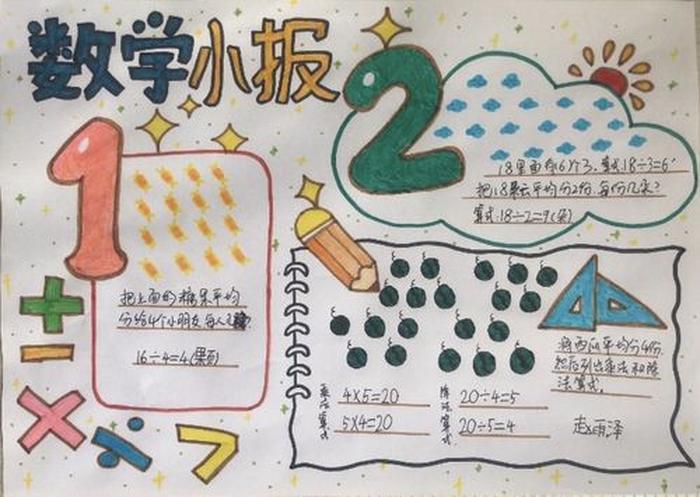 数学小报
1
2
18里面有6个3，算式18÷3=6
把18朵云平均分2份，每份几朵？
算式：18÷2=9(朵)
把上面的糖果平均
分给4个小朋友每人
16÷4=4(果)
将西瓜平均分4份
然后列出乘法和除
法算式。
乘法算式
4×5=20
5×4=20
除法算式
20÷4=5
20÷5=4
赵雨泽